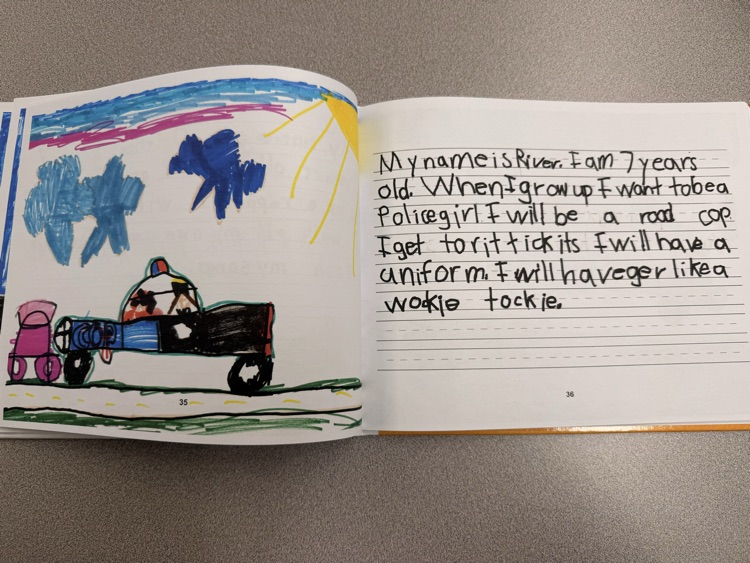 My name is River. I am 7 years
old. When I grow up I want to be a
Policegirl I will be a road cop
I get to rit tickits I will have a
uniform. I will have ger like a
wokie tockie.
35
36